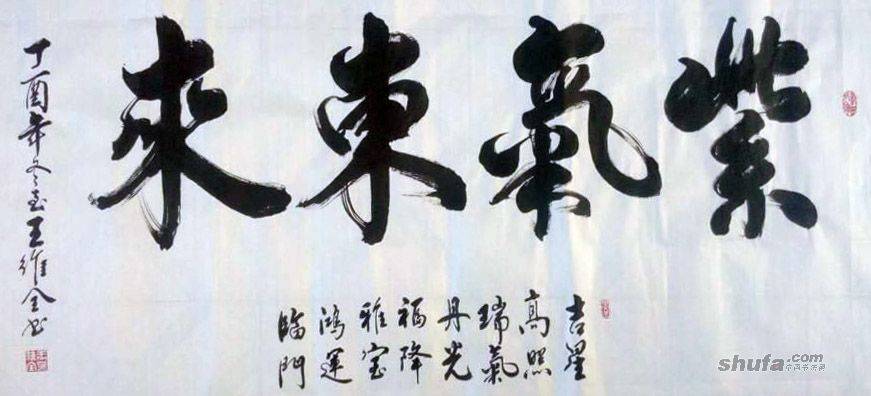 紫氣東來
吉星
高照
瑞氣
丹光
福降
雅室
鴻運
臨門
丁酉年文玄王維全書
shufa.com
中国书法网